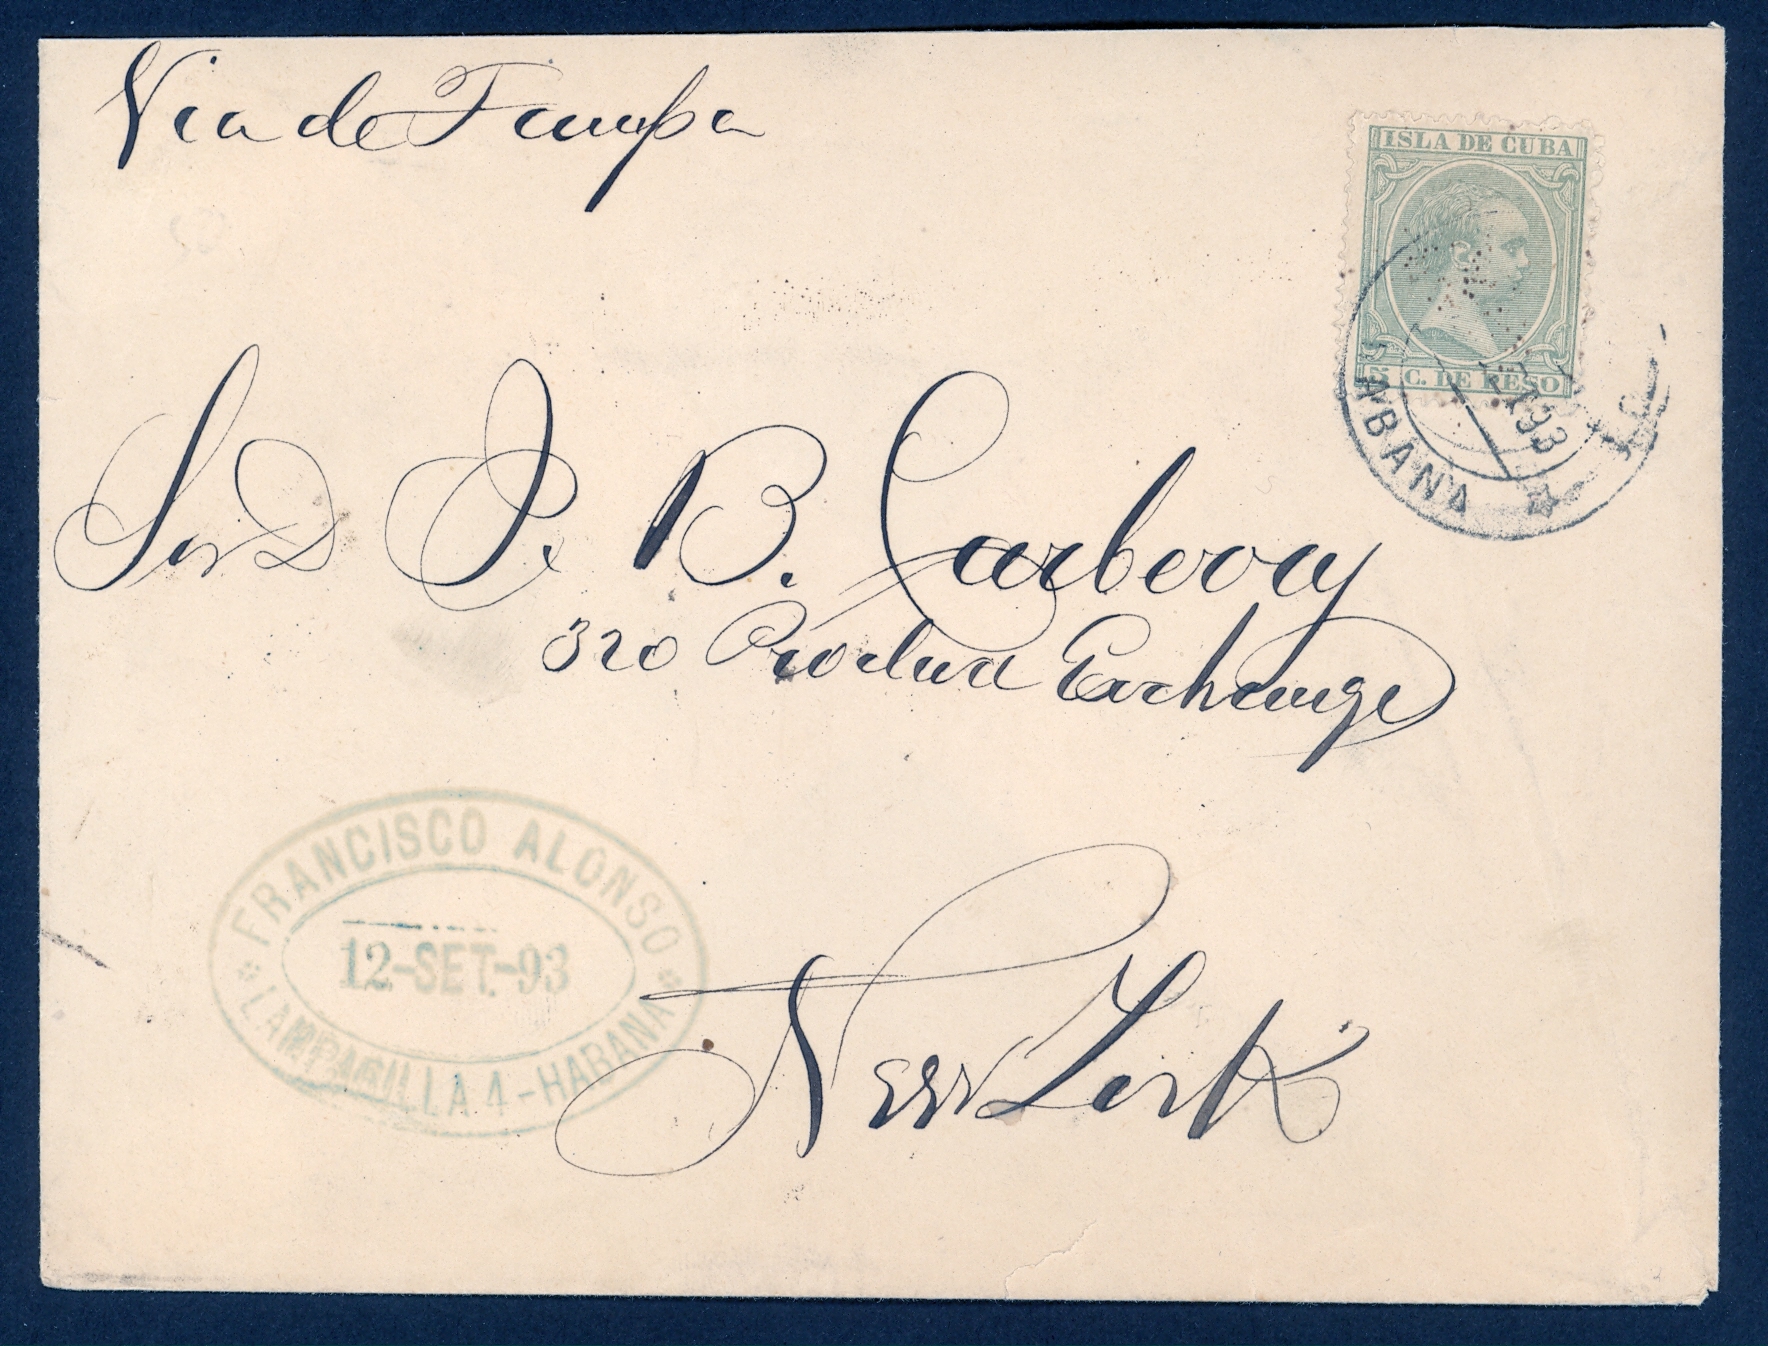 Via de Tampa
ISLA DE CUBA
5 C. DE PESO
HABANA
93
Sor D. J. B. Carberry
320 Produce Exchange
New York
FRANCISCO ALONSO
12-SET.-93
LAMPARILLA 4-HABANA